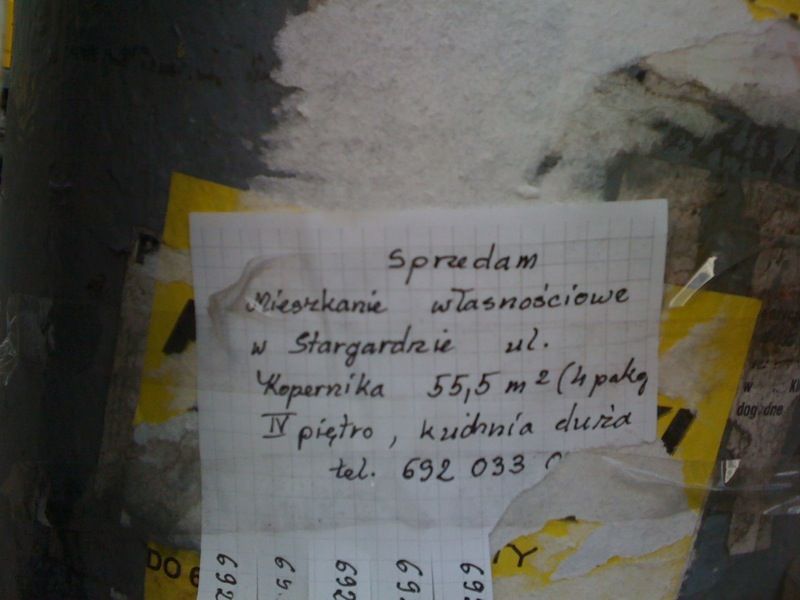 Sprzedam
Mieszkanie własnościowe
w Stargardzie ul.
Kopernika 55,5 m² (4 pokoj
IV piętro, kuchnia duża
tel. 692 033
w
dogodne
DO
692
692
692